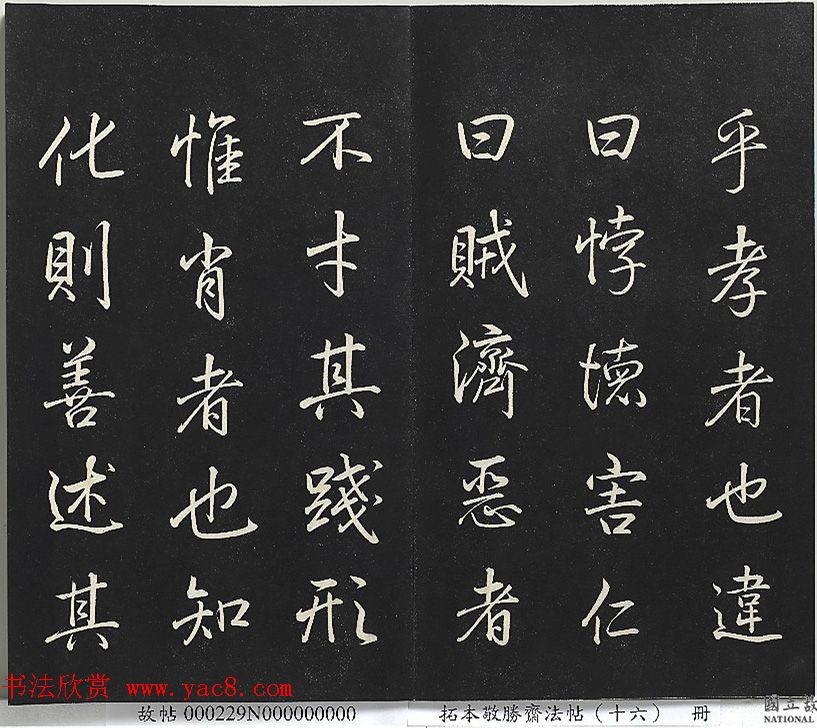 乎孝者也違
曰悖德害仁
曰賊濟惡者
不才其踐形
惟肖者也知
化則善述其
书法欣赏 www.yac8.com
故帖 000229N000000000
拓本敬勝齋法帖（十六） 冊
國立故
NATIONAL